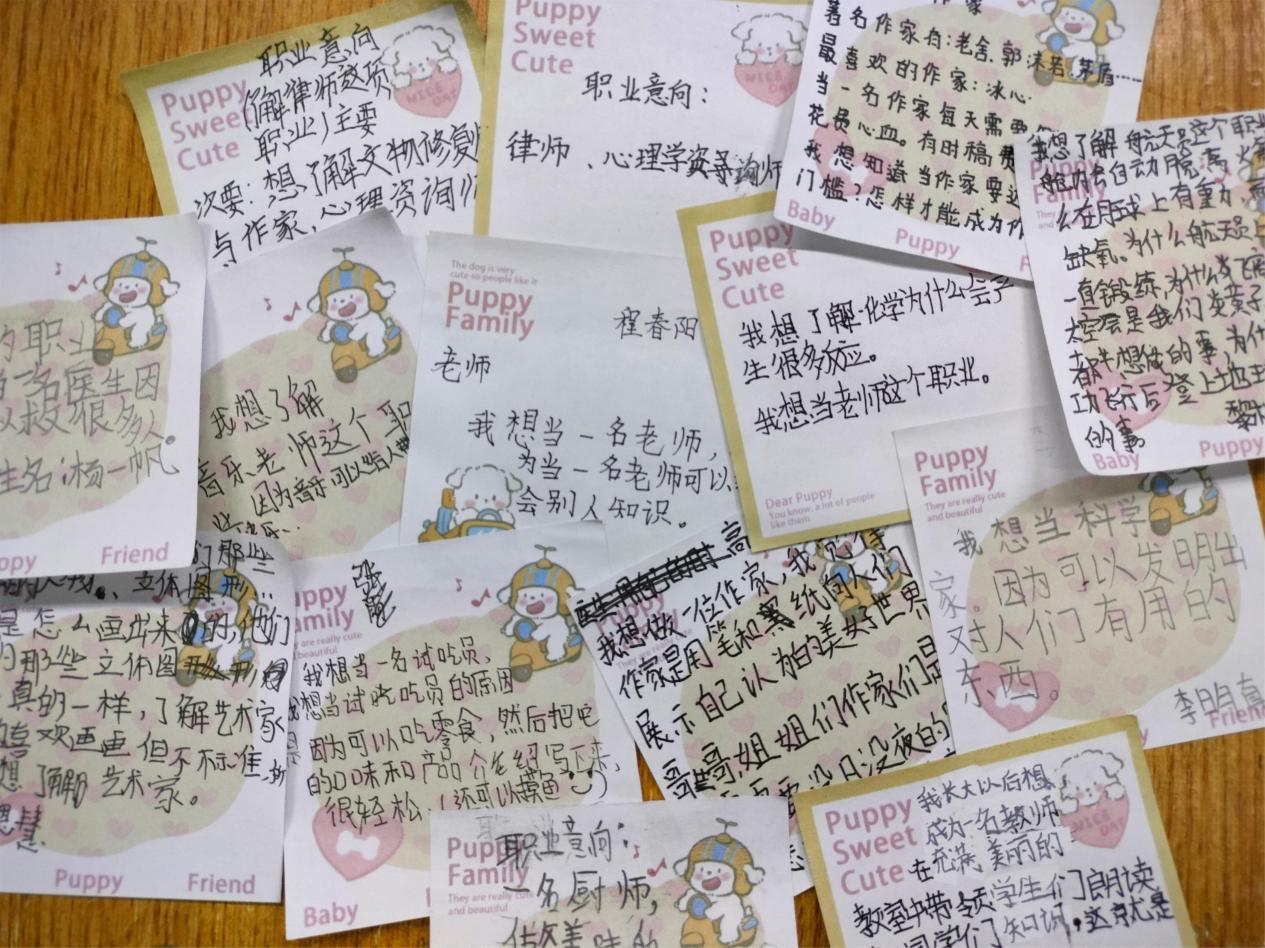 职业意向
(解律师这项
职业)主要
次要:想了解文物修复
与作家,心理资询师
Puppy
Sweet
Cute
NICE
DAY
Puppy
Sweet
Cute
NICE
DAY
职业意向:
律师、心理学资导询师
作家
著名作家有:老舍.郭沫若.茅盾……
最喜欢的作家:冰心.
当一名作家每天需要
花费心血。有时稿费
我想知道当作家要
门槛?怎样才能成为作
Baby
Puppy
我想了解航天员这个职业
么在月球上有重力
缺氧。为什么航天员
一直锻练,为什么
太空会是我们
都想做的事,为什
功飞行后登上地
的事
Baby
Puppy
的职业
一名医生因
以救很多人.
生名:杨一帆
Friend
我想了解
音乐老师这个职
因为音乐可以给人
The dog is very
cute so people like it
Puppy
Family
程春阳
老师
我想当一名老师,
为当一名老师可以
会别人知识。
Puppy
Sweet
Cute
我想了解化学为什么会产
生很多反应。
我想当老师这个职业。
Dear Puppy
You know, a lot of people
like them
Puppy
Family
They are really cute
and beautiful
我想当科学
家。因为可以发明出
对人们有用的
东西。
李明真
Friend
们那些
立体图形,
是怎么画出来的,他们
的那些立体图形
真的一样,了解艺术家
喜欢画画但不标准,所
想了解艺术家。
思慧
Puppy
Friend
Family
They are really cute
beautiful
我想当一名试吃员、
我想当试吃吃员的原因
因为可以吃零食,然后把它
的口味和产品介绍写下来,
很轻松、(还可以摸鱼:)
Baby
我想做一位作家,我
作家是用笔和纸向人们
展示自己认为的美好世界
哥哥姐姐们作家们是
没日没夜的
Puppy
Family
They are really cute
and beautiful
职业意向:
一名厨师,
做美味的
Puppy
Sweet
Cute
NICE
DAY
我长大以后想
成为一名教师
在充满美丽的
教室中带领学生们朗读
同学们知识。这就是